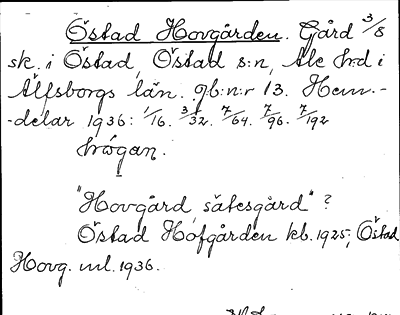 Östad Hovgården. Gård 3/8
sk. i Östad, Östad s:n, Ale hd i
Älfsborgs län. gb:n:r 13. Hem.-
-delar 1936: 1/16. 3/32. 7/64. 7/96. 7/192
"Hovgård, sätesgård" ?
Östad Hofgården kb. 1925; Östad
Hovg. ml. 1936.